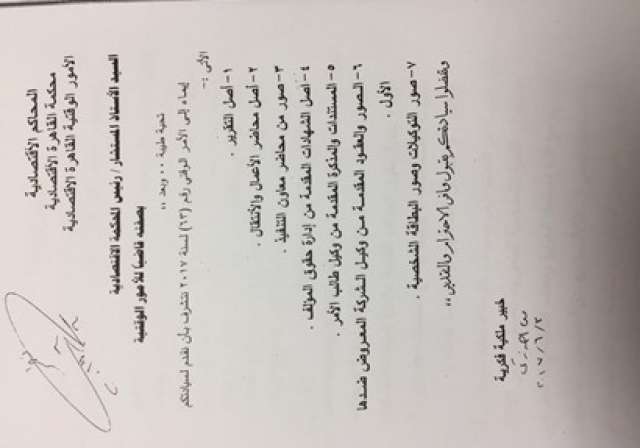 المحاكم الاقتصادية
محكمة القاهرة الاقتصادية
الأمور الوقتية القاهرة الاقتصادية
السيد الأستاذ المستشار / رئيس المحكمة الاقتصادية
بصفته قاضيا للأمور الوقتية
تحية طيبة .. وبعد ،،
إيماء إلى الأمر الوقتي رقم (٦٣) لسنة ٢٠١٧ نتشرف بأن نقدم لسيادتكم
الأتى :-
١- أصل التقرير .
٢- أصل محاضر الأعمال والأنتقال .
٣- صور من محاضر معاون التنفيذ .
٤- أصل الشهادات المقدمة من إدارة حقوق المؤلف .
٥- المستندات والمذكرة المقدمة من وكيل طالب الأمر .
٦- الصور والعقود المقدمة من وكيل الشركة المعروض ضدها
الأول .
٧- صور التوكيلات وصور البطاقة الشخصية .
وتفضلوا سيادتكم بقبول وافر الاحترام والتقدير ،،
خبير ملكية فكرية
٢٠١٧/٦/٣